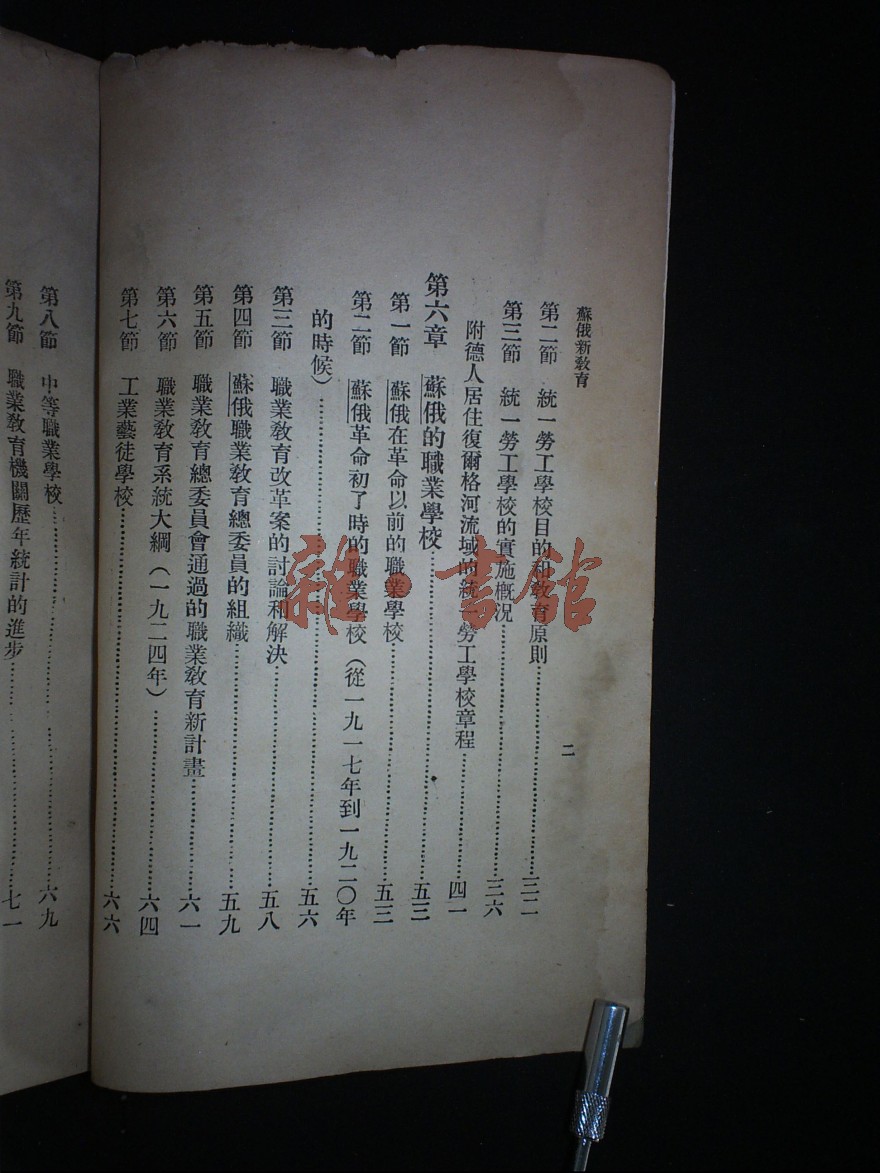 蘇俄新教育
二
第二節 統一勞工學校目的和教育原則……三二
第三節 統一勞工學校的實施概況……三六
附德人居住復爾格河流域的統一勞工學校章程……四一
第六章 蘇俄的職業學校……五三
第一節 蘇俄在革命以前的職業學校……五三
第二節 蘇俄革命初了時的職業學校（從一九一七年到一九二〇年
的時候）……五六
第三節 職業教育改革案的討論和解決……五八
第四節 蘇俄職業教育總委員的組織……五九
第五節 職業教育總委員會通過的職業教育新計畫……六一
第六節 職業教育系統大綱（一九二四年）……六四
第七節 工業藝徒學校……六六
第八節 中等職業學校……六九
第九節 職業教育機關歷年統計的進步……七一
雜·書館